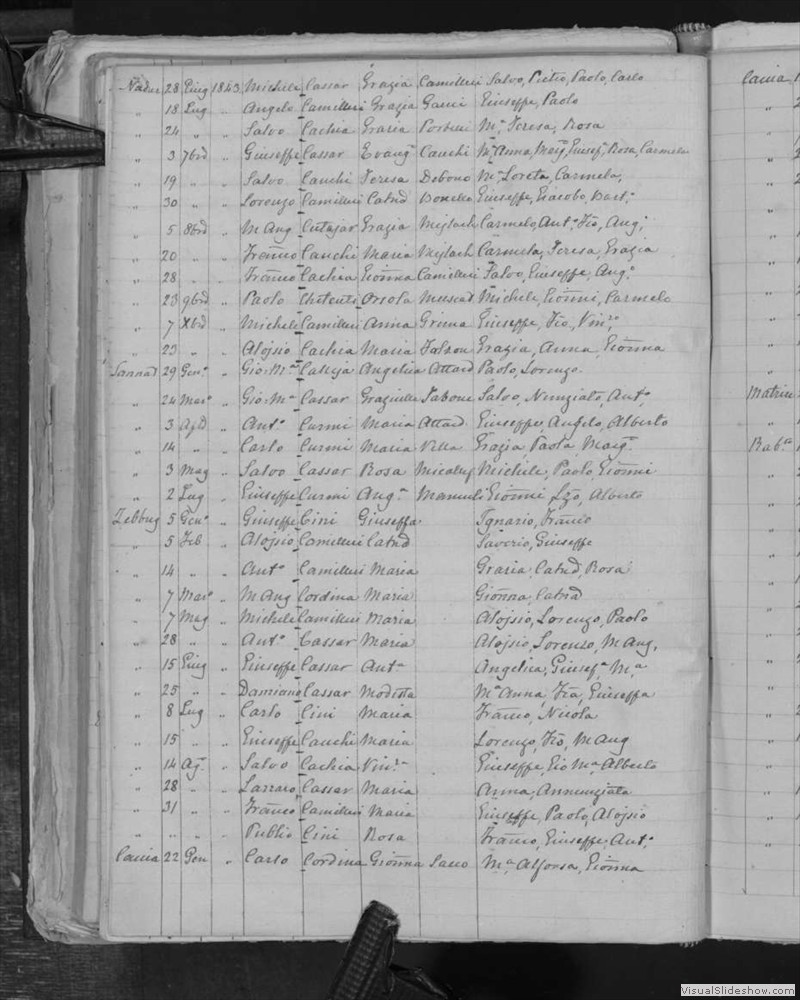 Nadur 28 Giug 1843 Michele Cassar Grazia Camilleri Salvo, Pietro, Paolo, Carlo
" 18 Lug " Angelo Camilleri Grazia Gauci Giuseppe, Paolo
" 24 " " Salvo Cachia Grazia Portelli Mª Teresa, Rosa
" 3 7bre " Giuseppe Cassar Evangª Cauchi Mª Anna, Giusefª, Rosa, Carmela
" 19 " " Salvo Cauchi Teresa Debono Mª Loreta, Carmela,
" 30 " " Lorenzo Camilleri Catnd Bonello Giuseppe, Giacobo, Bartº
" 5 8bre " M Ang Cutajar Grazia Mejlach Carmelo, Antº, Fio, Angº
" 20 " " Franco Cauchi Maria Mejlach Carmela, Teresa, Grazia
" 28 " " Franco Cachia Gioñna Camilleri Salvo, Giuseppe, Angº
" 23 9bre " Paolo Chetcuti Orsola Muscat Michele, Gioñni, Carmelo
" 7 Xbre " Michele Camilleri Anna Grima Giuseppe, Fio, Vinzº
" 23 " " Alojsio Cachia Maria Falzon Grazia, Anna, Gioñna
Sannat 29 Genº " Gio: Mª Calleja Angelica Attard Paolo, Lorenzo
" 24 Marº " Gio: Mª Cassar Graziella Tabone Salvo, Nunziato, Antº
" 3 Aple " Antº Curmi Maria Attard Giuseppe, Angelo, Alberto
" 14 " " Carlo Curmi Maria Vella Grazia, Paola, Margª
" 3 Mag " Salvo Cassar Rosa Micallef Michele, Paolo, Gioñni
" 2 Lug " Giuseppe Curmi Angª Gioñni Lzo, Alberto
Zebbug 5 Genº " Giuseppe Cini Giuseffa Ignazio, Franco
" 5 Feb " Alojsio Camilleri Catnd Saverio, Giuseppe
" 14 " " Antº Camilleri Maria Grazia, Catnd, Rosa
" 7 Marº " M Ang Cordina Maria Gioñna, Catnd
" 7 Mag " Michele Camilleri Maria Alojsio, Lorenzo, Paolo
" 28 " " Antº Cassar Maria Alojsio, Lorenzo, M Ang,
" 15 Giug " Giuseppe Cassar Antª Angelica, Giusefª, Mª
" 25 " " Damiano Cassar Modesta Mª Anna, Fra, Giuseppa
" 8 Lug " Carlo Cini Maria Franco, Nicola
" 15 " " Giuseppe Cauchi Maria Lorenzo, Fio, M Ang
" 14 Agº " Salvo Cachia Vinzª Giuseppe, Gio Mª, Alberto
" 28 " " Lazzaro Cassar Maria Anna, Annunziata
" 31 " " Franco Camilleri Maria Giuseppe, Paolo, Alojsio
" " " Publio Cini Rosa Franco, Giuseppe, Antº
Caccia 22 Gen " Carlo Cordina Gioñna Mª Alfonsa, Gioñna
Caccia
Matrice
Rabº
VisualSlideshow.com